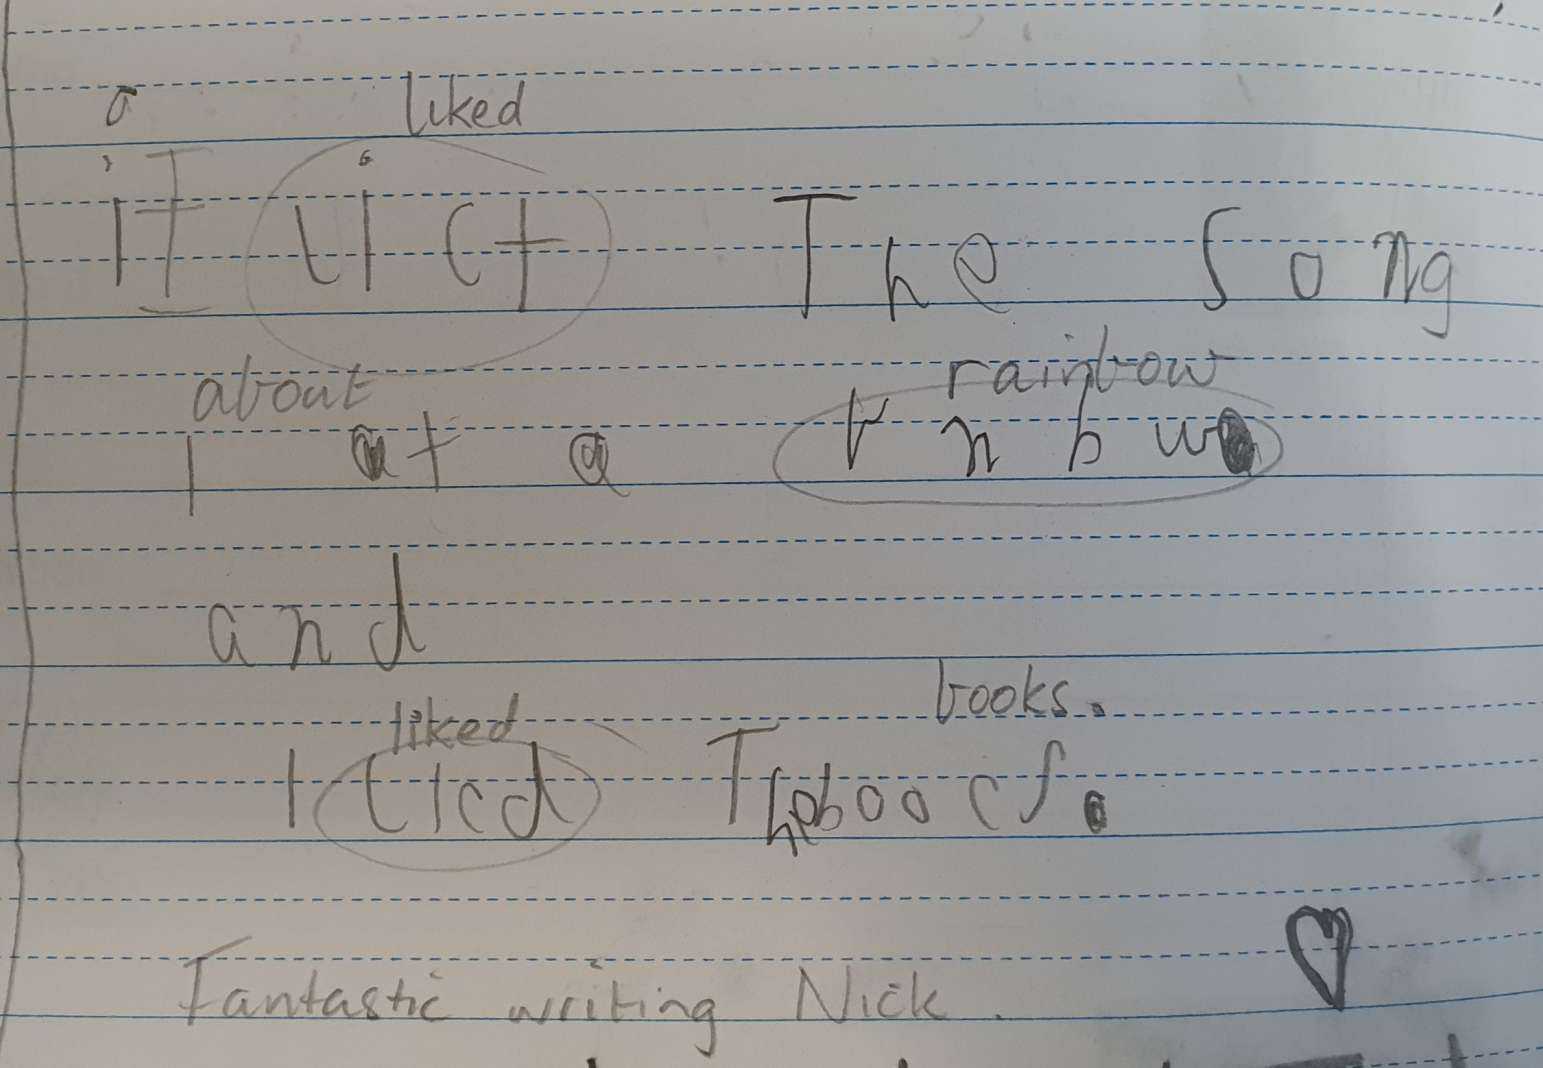 liked
I lict The song
about rainbow
I at a rnbw
and
liked books.
I licd The boocs.
Fantastic writing Nick.